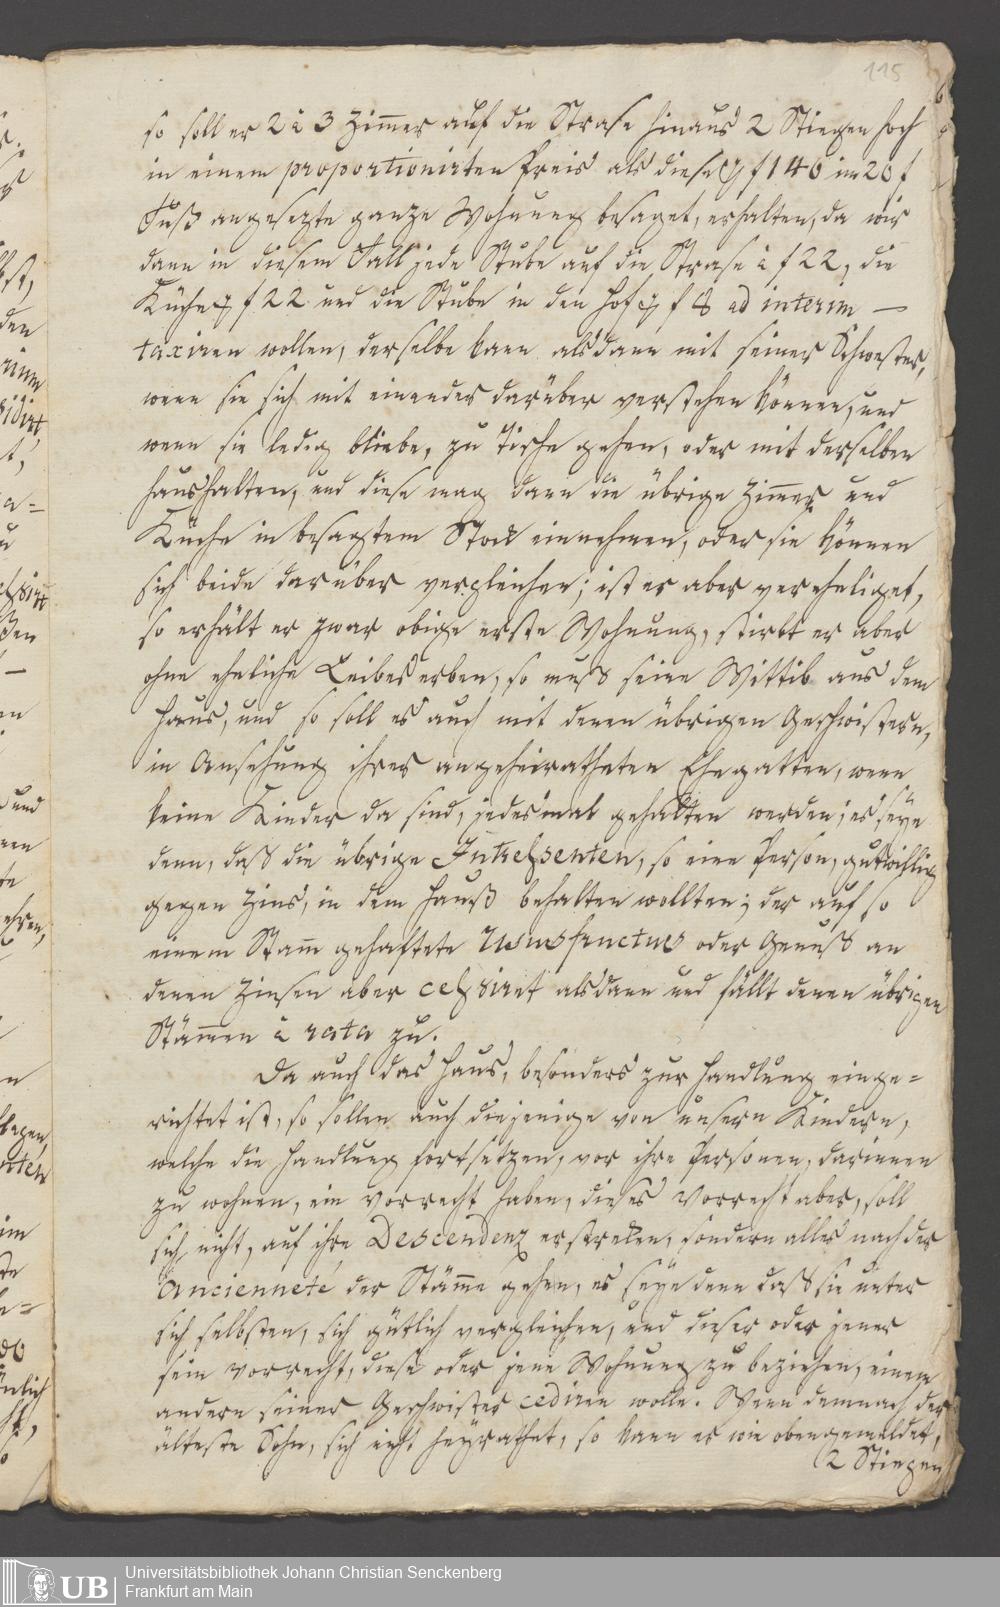 115
so soll er 2 à 3 Zimmer auf die Strase hinaus 2 Stiegen hoch
in einem proportionirten Preis als diese f 140 im 20 f
Fuß angesezte ganze Wohnung besaget, erhalten, da wir
dann in diesem Fall jede Stube auf die Strase à f 22, die
Küche f 22 und die Stube in den Hof f 8 ad interim —
taxiren wollen, derselbe kann alsdann mit seiner Schwester,
wenn sie sich mit einander darüber verstehen können, und
wenn sie ledig bliebe, zu Tische gehen, oder mit derselben
haushalten, und diese mag dann die übrige Zimmer und
Küche in besagtem Stock einnehmen, oder sie können
sich beide darüber vergleichen; ist er aber verehliget,
so erhält er zwar obige erste Wohnung, stirbt er aber
ohne eheliche Leibeserben, so muß seine Wittib aus dem
Haus, und so soll es auch mit denen übrigen Geschwistern,
in Ansehung ihrer angeheiratheten Ehegatten, wenn
keine Kinder da sind, jedesmal gehalten werden; es seye
denn, daß die übrige Intressenten, so eine Person, gutwillig
gegen Zins, in dem Hauß behalten wollten; der auf so
einem Stam̄ gehaftete Ususfructus oder Genuß an
denen Zinsen aber cessiret alsdann und fällt denen übrigen
Stäm̄en à rata zu.
Da auch das Haus, besonders zur Handlung einge=
richtet ist, so sollen auch diejenige von unsern Kindern,
welche die Handlung fortsetzen, vor ihre Personen, darinnen
zu wohnen, ein Vorrecht haben, dieses Vorrecht aber, soll
sich nicht, auf ihre Descendenz erstreken, sondern alles nach der
Ancienneté der Stäm̄e gehen, es seye denn daß sie unter
sich selbsten, sich gütlich vergleichen, und dieser oder jener
sein Vorrecht, diese oder jene Wohnung zu beziehen, einem
andern seiner Geschwister cediren wolle. Wenn demnach der
älteste Sohn, sich nicht heyrathet, so kann er wie obengemeldet,
2 Stiegen
UB
Universitätsbibliothek Johann Christian Senckenberg
Frankfurt am Main